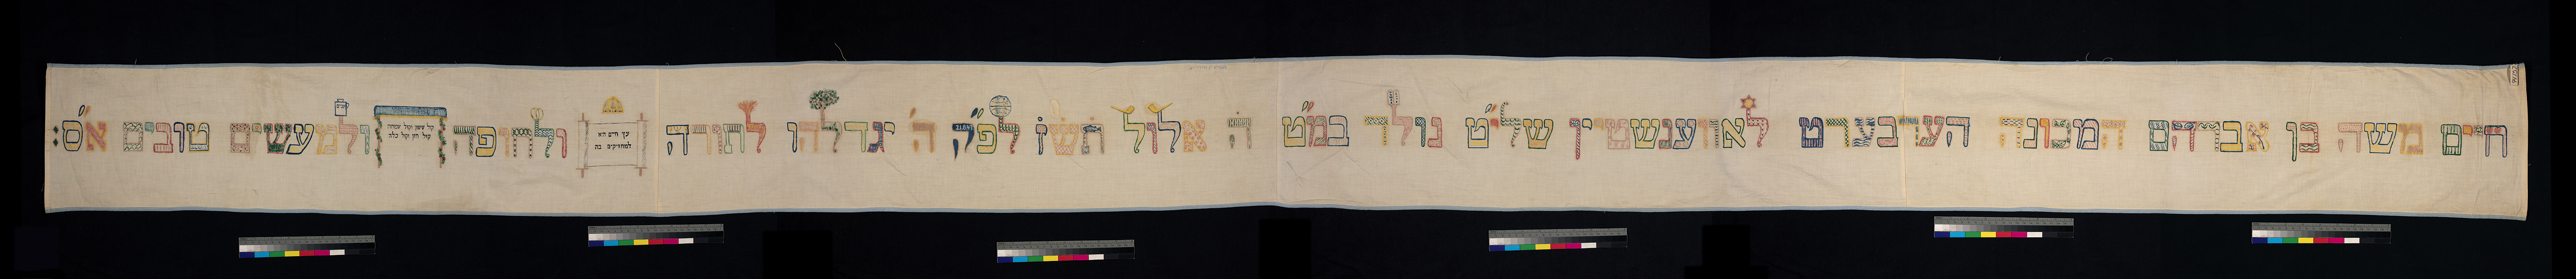 חיים משה בן אברהם המכונה הערבערט לאווענשטיין שלי״ט נולד במ״ט ה׳ אלול תשז לפ״ק ה׳ יגדלהו לתורה
עץ חיים היא
למחזיקים בה
ולחופה
קול ששון וקול שמחה
קול חתן וקול כלה
ולמעשים טובים א״ס: